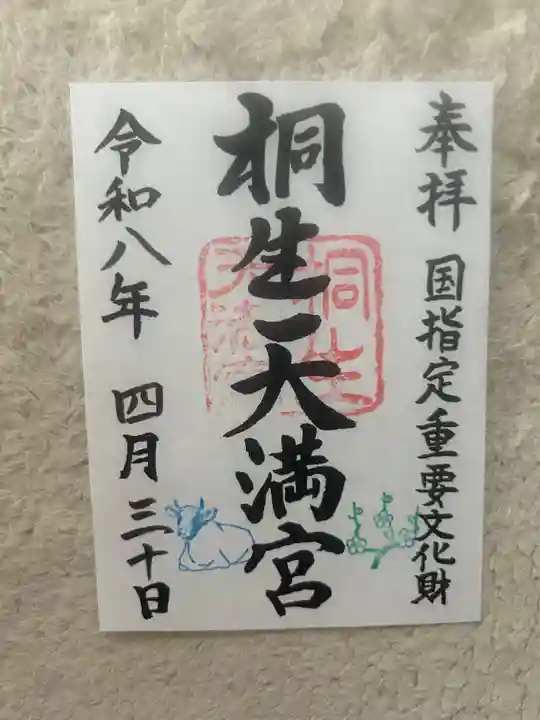 奉拝 国指定重要文化財
桐生天満宮
桐生
天満宮
令和八年 四月三十日